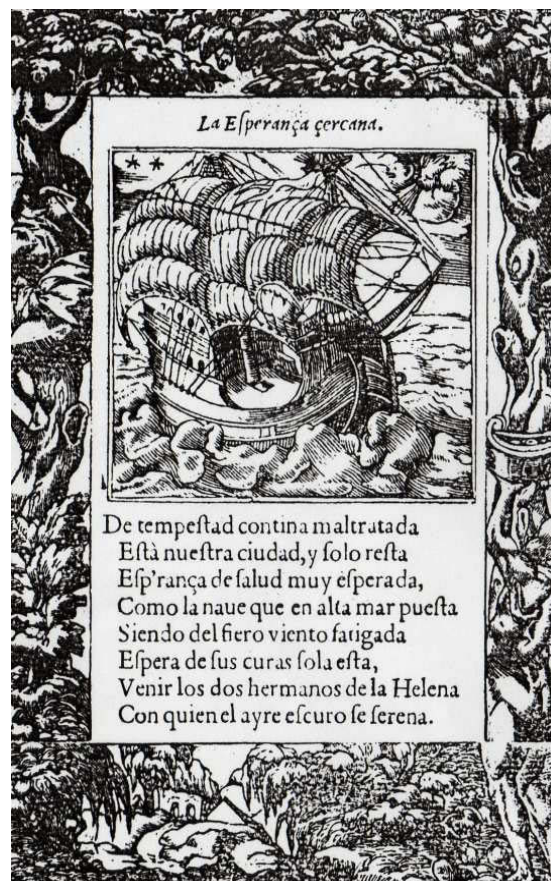 La Eſperança çercana.
De tempeſtad contina maltratada
Eſtà nueſtra ciudad, y ſolo reſta
Eſp'rança de ſalud muy eſperada,
Como la naue que en alta mar pueſta
Siendo del fiero viento fatigada
Eſpera de ſus curas ſola eſta,
Venir los dos hermanos de la Helena
Con quien el ayre eſcuro ſe ſerena.